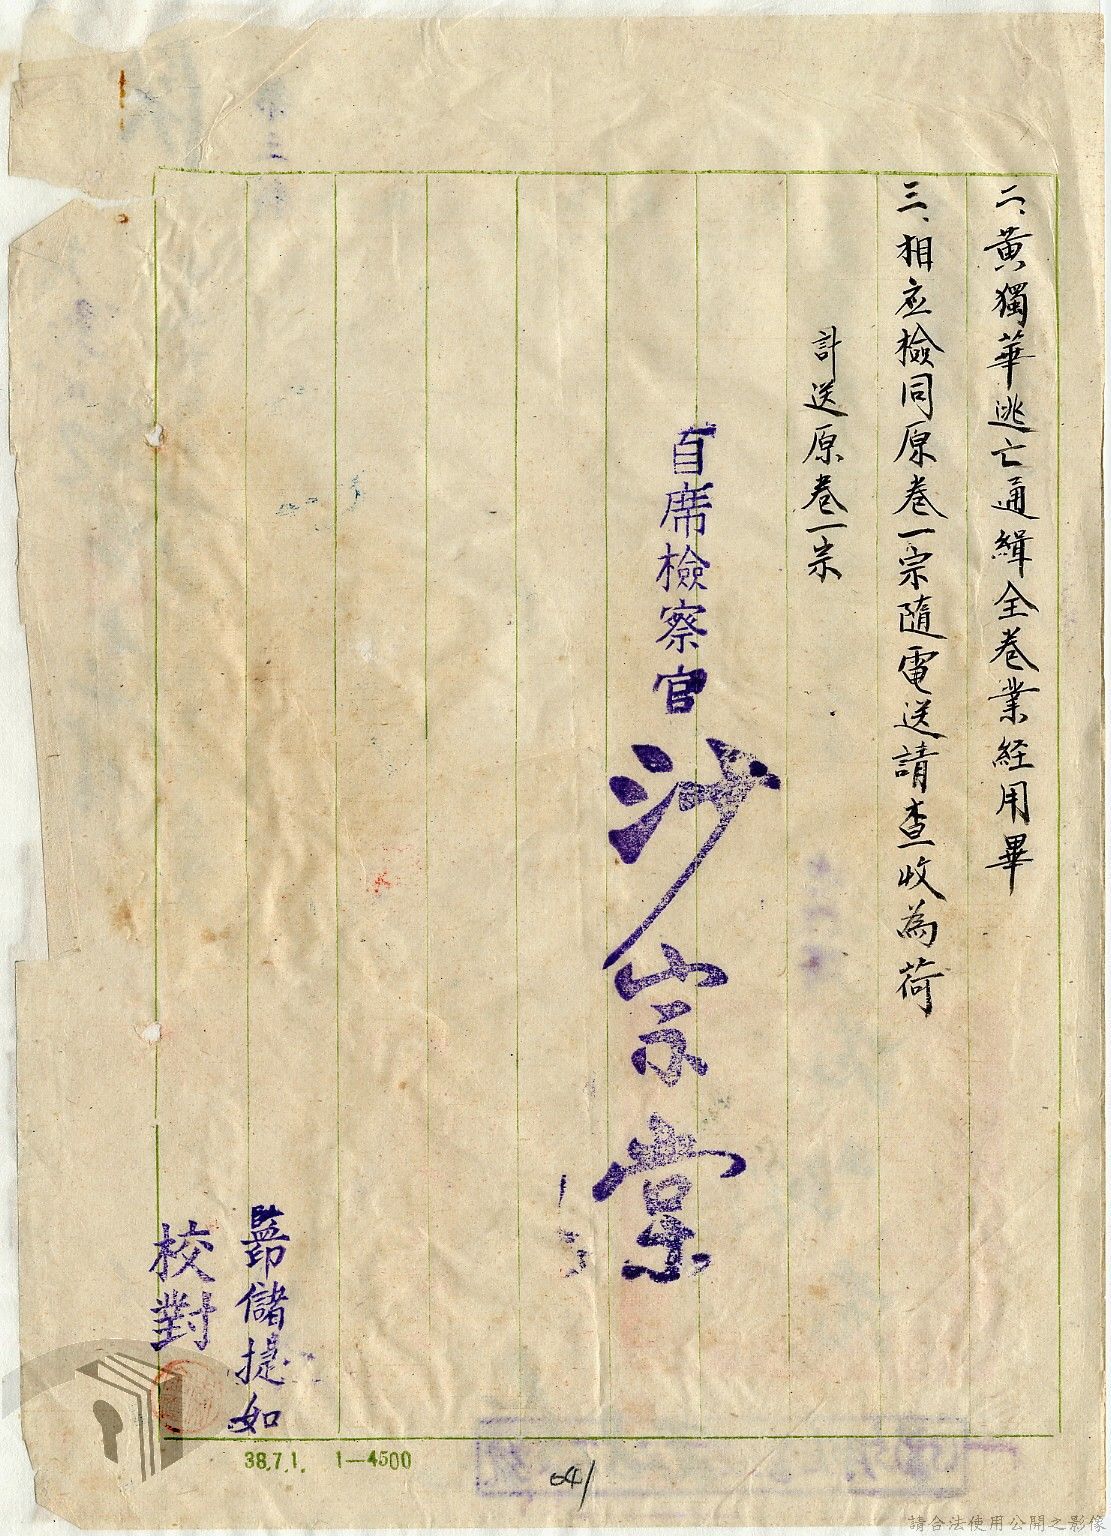 二、黃獨華逃亡通緝全卷業経用畢
三、相应檢同原卷一宗隨電送請查收為荷
計送原卷一宗
首席檢察官
沙宗棠
監印儲提如
校對
38.7.1. 1—4500
041
請合法使用公開之影像